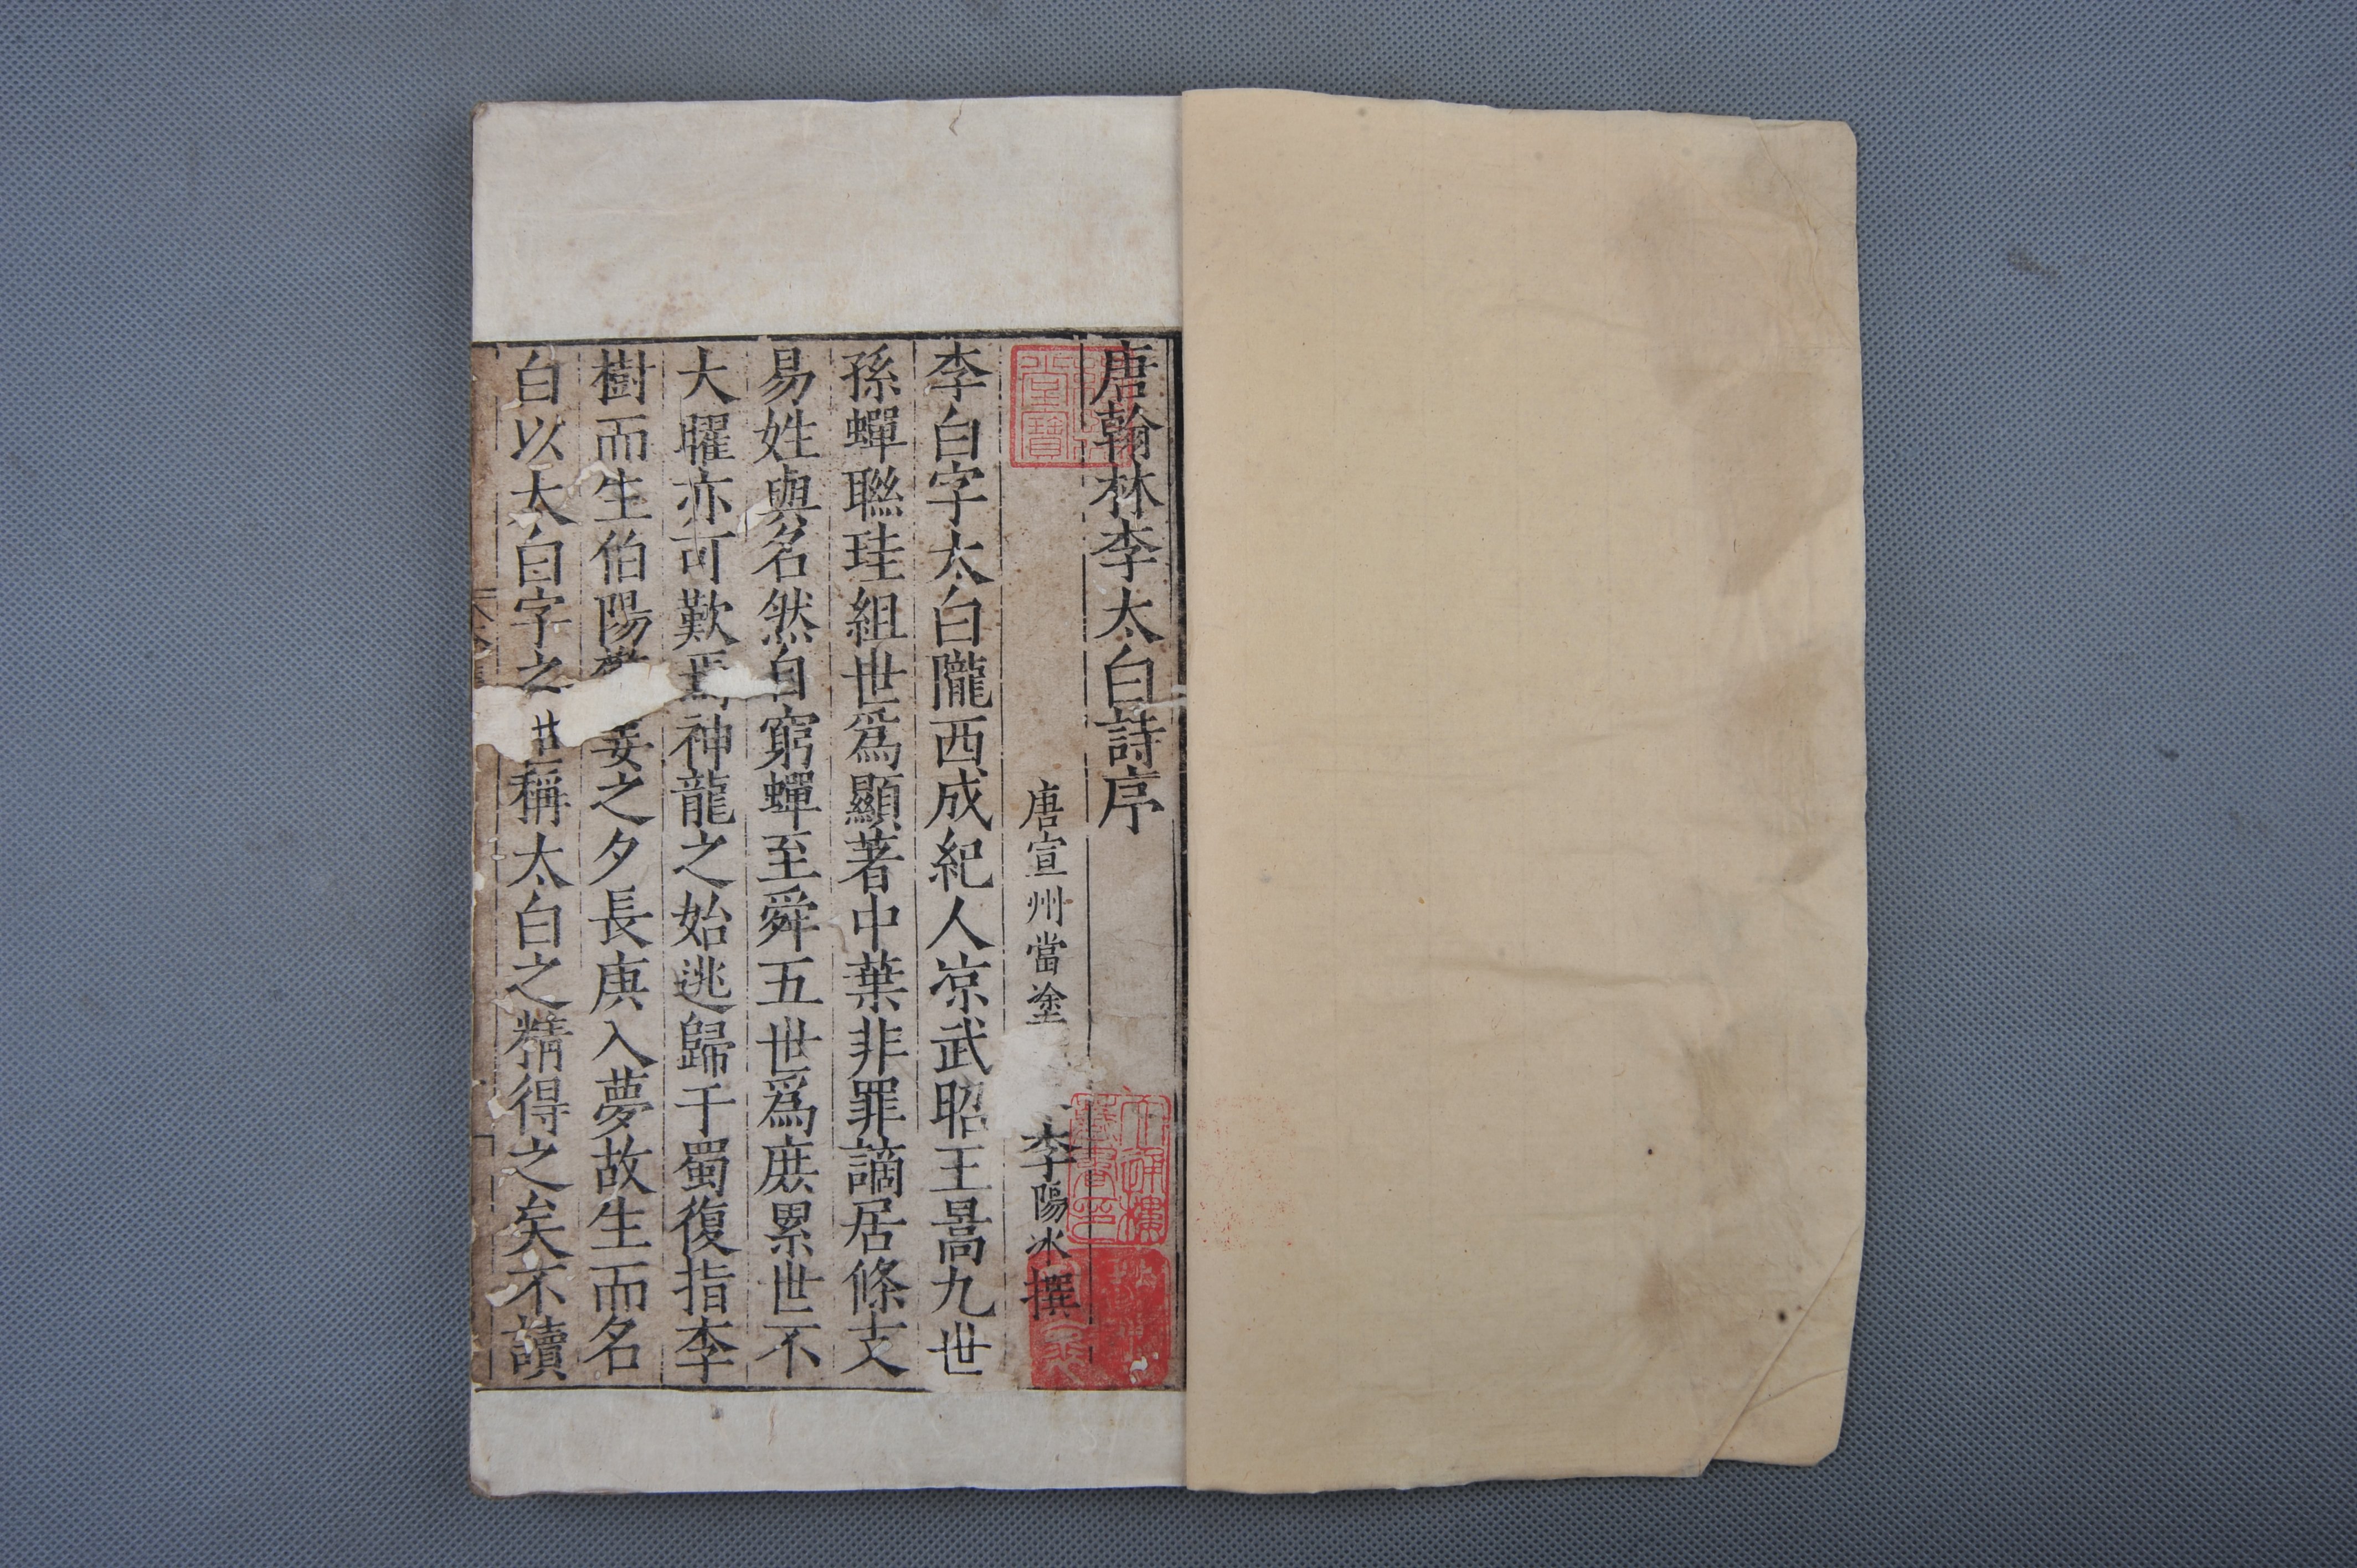 唐翰林李太白詩序
唐宣州當塗 李陽冰撰
李白字太白隴西成紀人凉武昭王暠九世
孫蟬聯珪組世爲顯著中葉非罪謫居條支
易姓與名然自窮蟬至舜五世爲庶累世不
大曜亦可歎焉神龍之始逃歸于蜀復指李
樹而生伯陽 之夕長庚入夢故生而名
白以太白字之世稱太白之精得之矣不讀